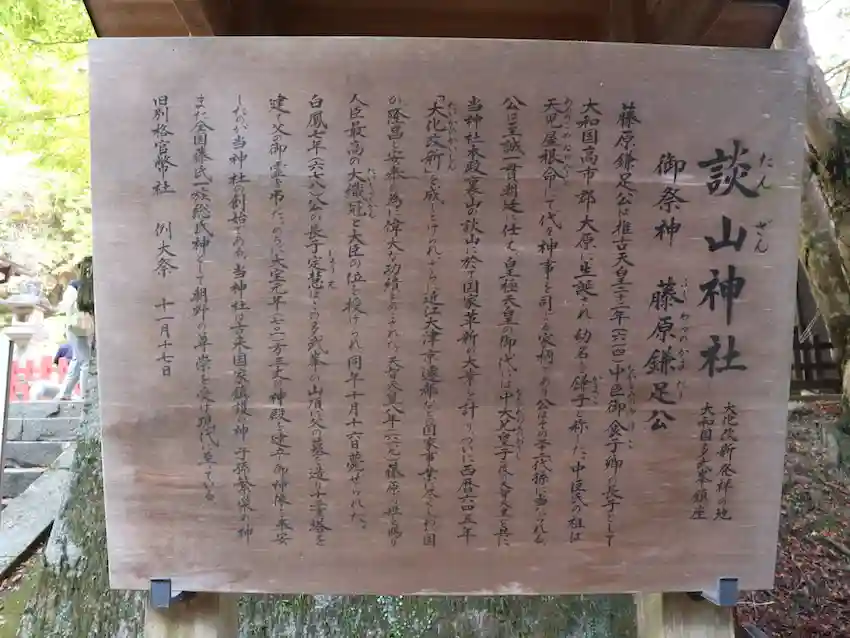 談山神社
たん ざん
大化改新発祥の地
大和国多武峯鎮座
御祭神 藤原鎌足公
ふじ わらのかま たり
藤原鎌足公は推古天皇二十二年(六一四)中臣御食子卿の長子として
大和国高市郡大原に生誕され幼名を鎌子と称した。中臣氏の祖は
天児屋根命にして代々神事を司どる家柄であり公はその
公は至誠一貫朝廷に仕え皇極天皇の御代には中大兄皇子
当神社本殿裏山の談山に於て国家革新の大事を計りついに西暦六四五年
「大化改新」を成しとげられ 近江大津京遷都など国家事業に尽くしわが国
が隆昌と安泰の為に偉大な功績をのこされた。天智天皇八年(六六九)藤原の姓を賜り
人臣最高の大織冠と大臣の位を授けられ同年十月十六日薨ぜられた。
白鳳七年(六七八)公の長子定慧は この多武峯の山頂に父の墓を造り十三重塔を
建て父の御霊を弔た。 大宝元年(七〇一)方三丈の神殿を建立御神像を奉安
したのが当神社の創始である。当神社は古来国家鎮護の神 子孫繁栄の神
また全国藤氏一族総氏神として朝野の尊崇を受け現代に至っている
旧別格官幣社 例大祭 十一月十七日